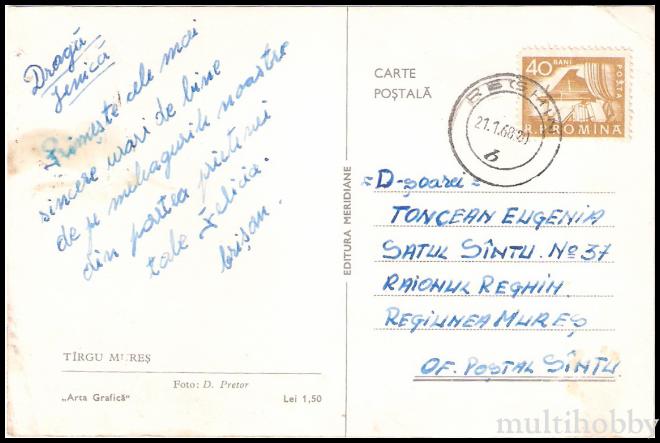 Dragă
Jenică
Primește cele mai
sincere urări de bine
de pe meleagurile noastre
din partea prietenei
tale Felicia.
Crișan.
TÎRGU MUREȘ
Foto: D. Pretor
„Arta Grafică"
Lei 1,50
EDITURA MERIDIANE
CARTE
POȘTALĂ
40 BANI
POȘTA
R.P.ROMINA
REGHIN
21.1.68
b
=D-șoarei=
TONCEAN EUGENIA
SATUL SÎNTU. Nº 37
RAIONUL REGHIN
REGIUNEA MUREȘ
OF. POȘTAL SÎNTU
multihobby